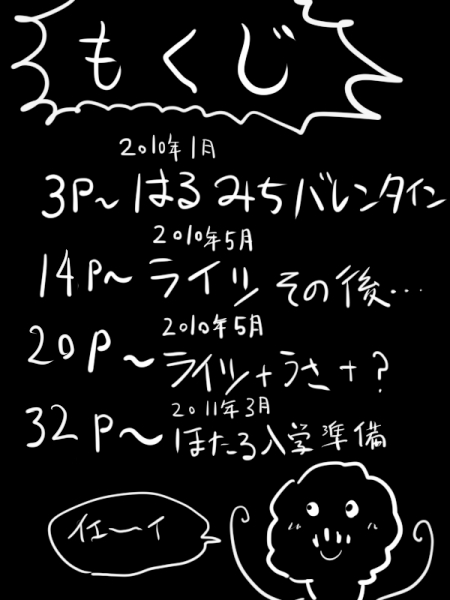 もくじ
2010年1月
3P〜はるみちバレンタイン
2010年5月
14P〜ライツその後…
2010年5月
20P〜ライツ+うさ+?
2011年3月
32P〜ほたる入学準備
イエーイ